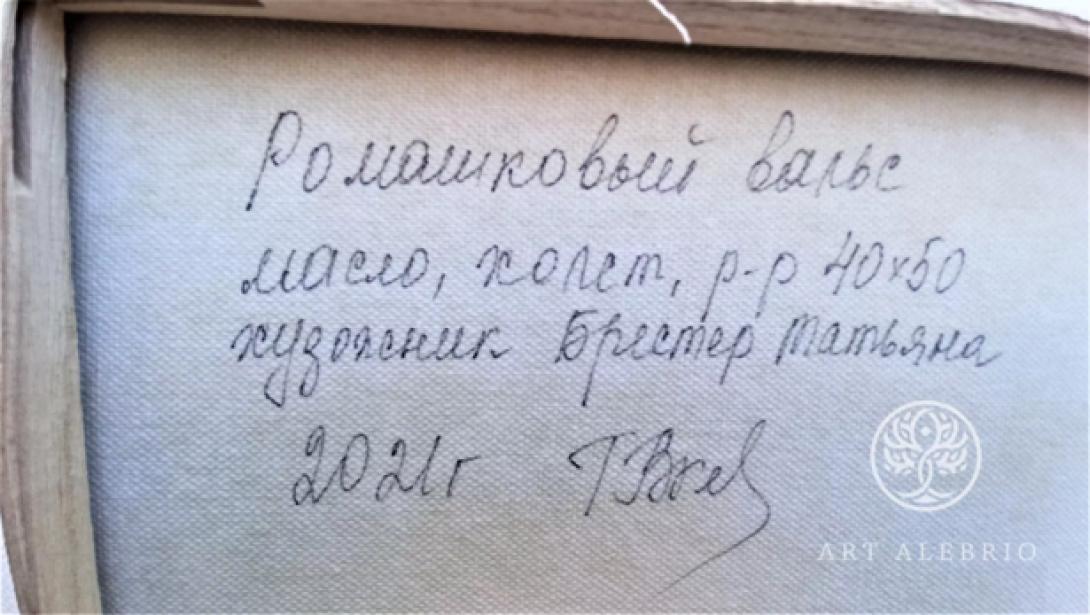 Ромашковый вальс
масло, холст, р-р 40х50
художник Брестер Татьяна
2021г
ART ALEBRIO